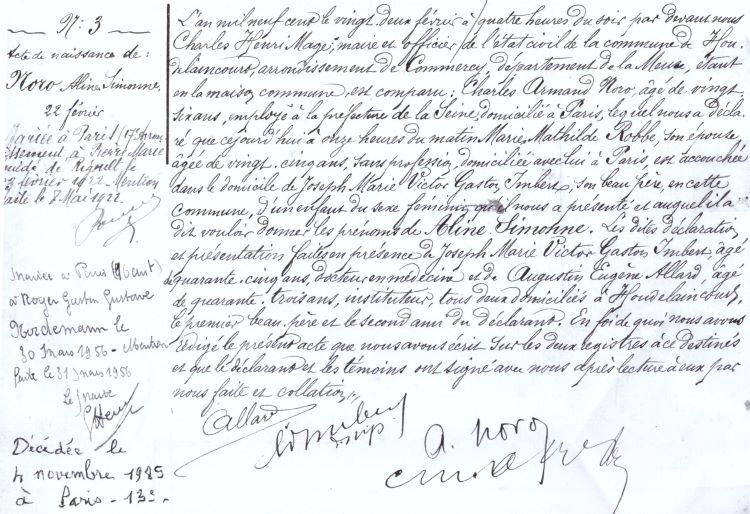 N: 3
Acte de naissance de:
Noro Aline Simonne.
22 février
Mariée à Paris (17e Arron
dissement, à Pierre Marie
de Rignult le
février 1922. Mention
faite le 8 Mai 1922.
Mariée à Paris
à Roger Gaston Gustave
Nordemann le
30 mars 1956 - Mention
faite le 31 mars 1956
Le Maire
Décédée le
4 novembre 1985
à Paris - 13e -
L'an mil neuf cent le vingt deux février à quatre heures du soir par devant nous
Charles Henri Mage, maire et officier de l'état civil de la commune de Hou-
delaincourt, arrondissement de Commercy, département de la Meuse, étant
en la maison commune, est comparu: Charles Armand Noro, âgé de vingt
six ans, employé à la préfecture de la Seine domicilié à Paris, lequel nous a décla
ré que cejourd'hui à onze heures du matin Marie Mathilde Robbe, son épouse,
âgée de vingt-cinq ans, sans profession, domiciliée avec lui à Paris, est accouchée
dans le domicile de Joseph Marie Victor Gaston Imbert, son beau père, en cette
commune, d'un enfant du sexe féminin qu'il nous a présenté et auquel il a
dit vouloir donner les prénoms de Aline Simonne. Les dites déclaration
et présentation faites en présence de Joseph Marie Victor Gaston Imbert, âgé
de quarante-cinq ans, docteur en médecine et de Augustin Eugène Allard, âgé
de quarante-trois ans, instituteur, tous deux domiciliés à Houdelaincourt,
le premier beau-père et le second ami du déclarant. En foi de quoi nous avons
rédigé le présent acte que nous avons écrit sur les deux registres à ce destinés
et que le déclarant et les témoins ont signé avec nous après lecture à eux par
nous faite et collation,,
Allard
A. Noro